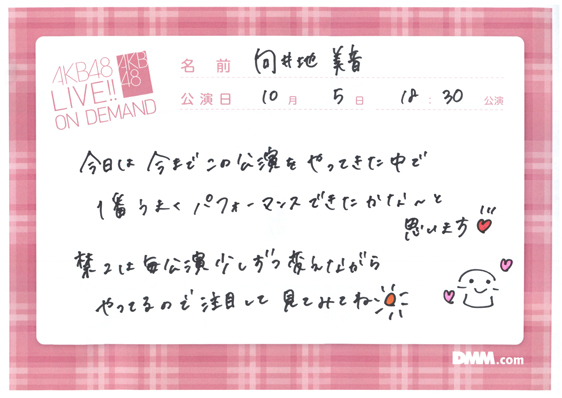 AKB48
LIVE!!
ON DEMAND
AKB
48
名前 向井地 美音
公演日 10月 5日 18:30 公演
今日は今までこの公演をやってきた中で
1番うまくパフォーマンスできたかな〜と
思います
禁2は毎公演少しずつ変えながら
やってるので注目して見てみてね
DMM.com